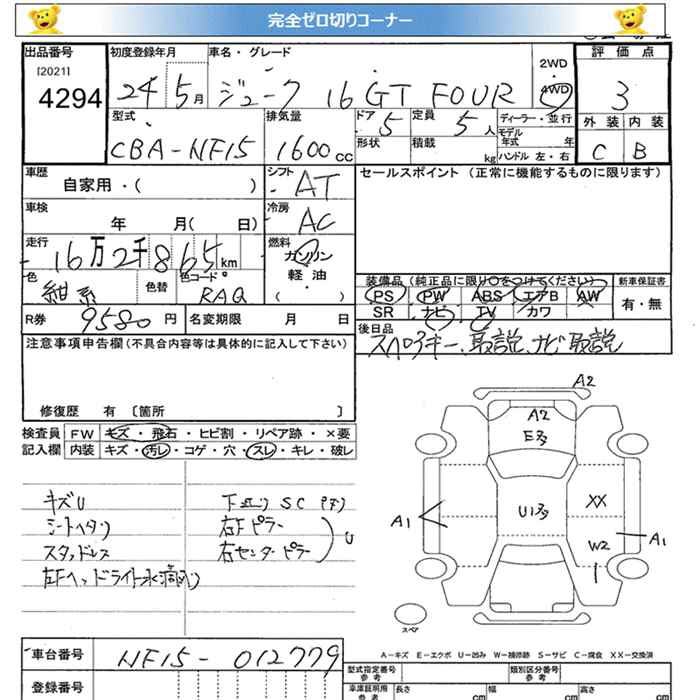 完全ゼロ切りコーナー
出品番号 初度登録年月 車名・グレード 評価点
[2021]
4294
24年 5月 ジューク 16GT FOUR 2WD 4WD 3
型式 排気量 ドア 5 定員 5人 ディーラー・並行 外装 内装
CBA-NF15 1600cc 形状 積載 kg モデル年式 年 ハンドル 左・右 C B
車歴 自家用・( ) シフト AT セールスポイント (正常に機能するものに限ります)
車検 年 月( 日) 冷房 AC
走行 16万2千865km 燃料 ガソリン 軽油 ( )
色 紺系 色替 色コード RAQ
装備品(純正品に限り〇をつけてください) 新車保証書
PS PW ABS エアB AW 有・無
SR ナビ TV カワ
R券 9580円 名変期限 月 日 後日品
スペアキー、取説、ナビ取説
注意事項申告欄(不具合内容等は具体的に記入して下さい)
修復歴 有 〔箇所 〕
検査員 FW キズ・飛石・ヒビ割・リペア跡・×要
記入欄 内装 キズ・汚レ・コゲ・穴・スレ・キレ・破レ
キズU
シートヘタリ
スタッドレス
左Fヘッドライト水滴
下廻り SC
右Fピラー
右センターピラー U
A2
A2
E多
U1多
XX
A1
A1
W2
スペア
A-キズ E-エクボ U-凹み W-補修跡 S-サビ C-腐食 XX-交換済
車台番号 NF15-012779
型式指定番号 参考 類別区分番号 参考
登録番号
車庫証明用 参考 長さ cm 幅 cm 高さ cm